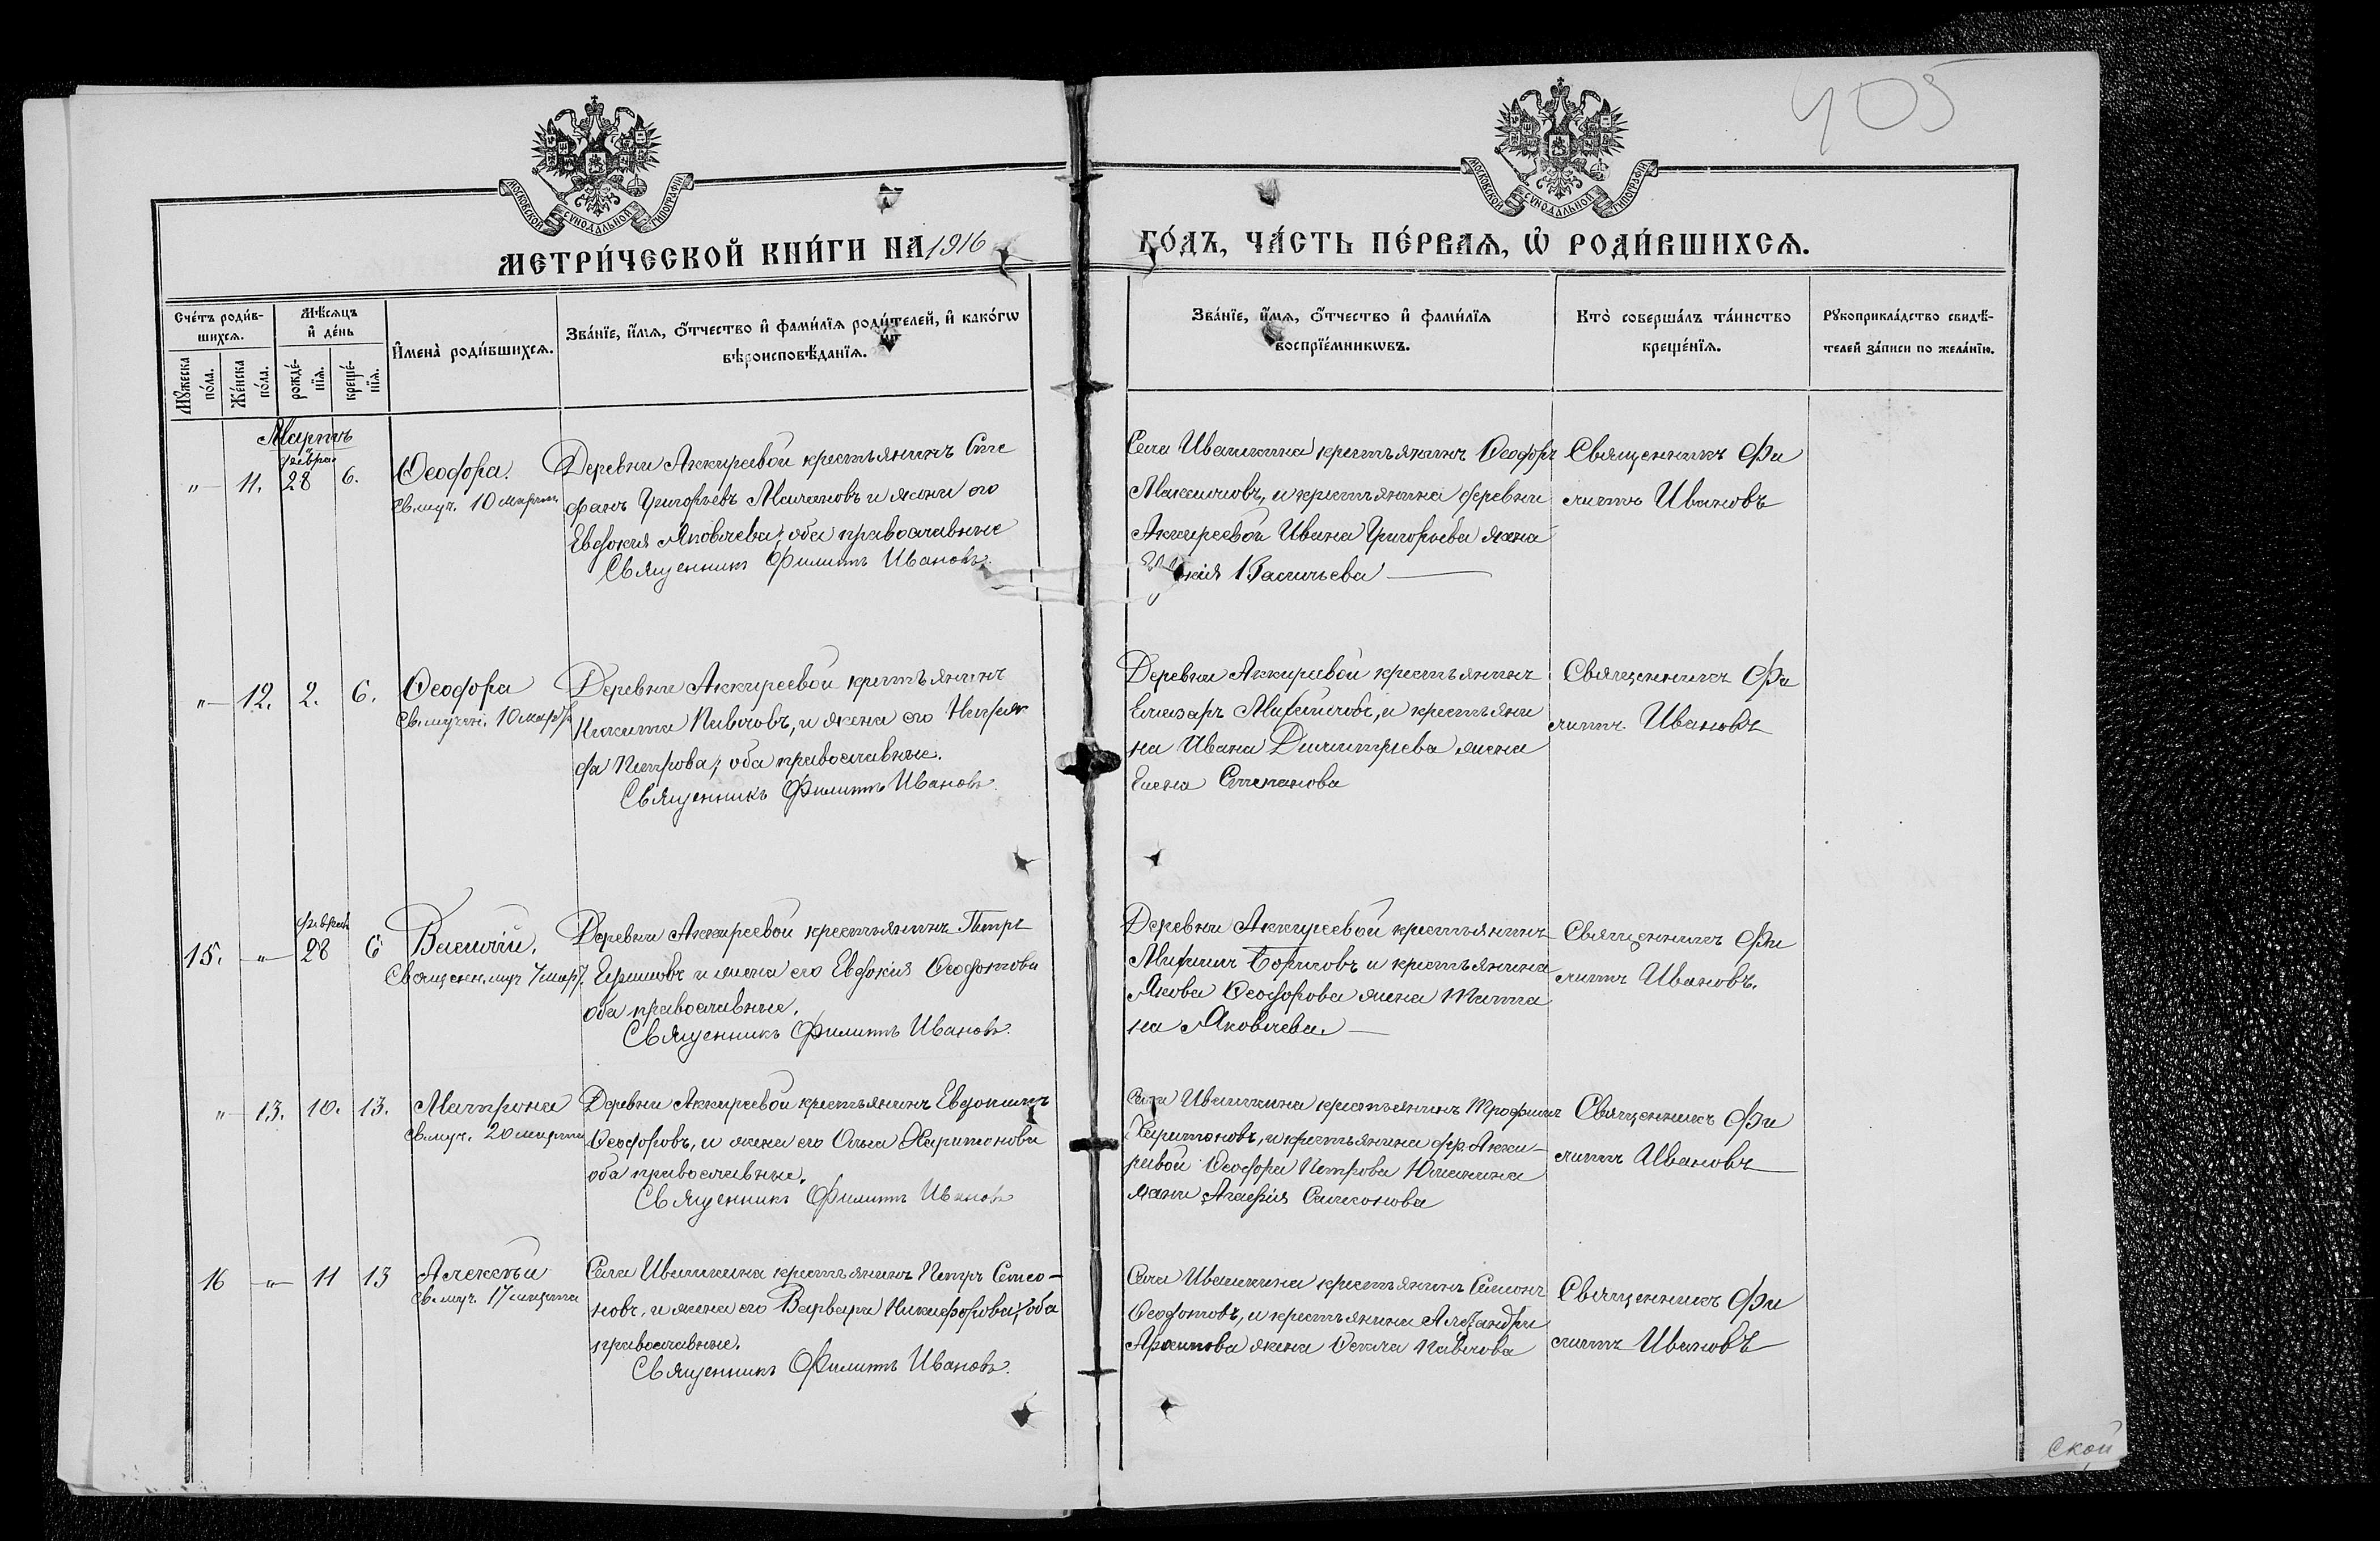 405
МОСКОВСКОЙ СѴНОДАЛЬНОЙ ТИПОГРАФІИ
МОСКОВСКОЙ СѴНОДАЛЬНОЙ ТИПОГРАФІИ
МЕТРИ́ЧЕСКОЙ КНИ́ГИ НА 1916
ГО́ДЪ, ЧА́СТЬ ПЕ́РВАѦ, Ѽ РОДИ́ВШИХСѦ.
Сче́тъ роди́в-
шихсѧ.
Мѣ́сяцъ
и҆ де́нь
Мꙋ́жеска
по́ла.
Же́нска
по́ла.
рожде́-
нїѧ.
креще́-
нїѧ.
И҆мена̀ роди́вшихсѧ.
Зва́нїе, и҆́мѧ, ѻ҆́тчество и҆ фами́лїѧ роди́телей, и҆ како́гѡ
вѣроисповѣ́данїѧ.
Зва́нїе, и҆́мѧ, ѻ҆́тчество и҆ фами́лїѧ
воспрїе́мникѡвъ.
Кто̀ соверша́лъ та́инство
креще́нїѧ.
Рꙋкоприкла́дство свидѣ́-
телей за́писи по жела́нїю.
Мартъ
" 11. феврал 28 6.
Ѳеодора.
св. муч. 10 марта
Деревни Аккиреевой крестьянинъ Сте
фанъ Григорьевъ и жена его
Евдокия Яковлева; оба православные
Священникъ Филиппъ Ивановъ.
Села Ивашкина крестьянинъ Ѳеодоръ
Максимовъ, и крестьянина деревни
Аккиреевой Ивана Григорьева жена
Васильева
Священникъ Фи
липпъ Ивановъ
" 12. 2. 6.
Ѳеодора
св. мучен. 10 мар.
Деревни Аккиреевой крестьянинъ
Никита Павловъ, и жена его
Петрова; оба православные.
Священникъ Филиппъ Ивановъ.
Деревни Аккиреевой крестьянинъ
Елеазаръ и крестьяни
на Ивана Димитриева жена
Елена Степанова
Священникъ Фи
липпъ Ивановъ
15. " феврал 28 6
Василій.
Священн. муч. 7 мар.
Деревни Аккиреевой крестьянинъ Петръ
и жена его Евдокія Ѳеодотова
оба православные.
Священникъ Филиппъ Ивановъ.
Деревни Аккиреевой крестьянинъ
Борисовъ и крестьянина
Якова Ѳеодорова жена Татиа
на Яковлева.
Священникъ Фи
липпъ Ивановъ.
" 13. 10. 13.
Матрона
св. муч. 20 марта
Деревни Аккиреевой крестьянинъ Евдокимъ
Ѳеодоровъ, и жена его Ольга Харитонова
оба православные.
Священникъ Филиппъ Ивановъ
Села Ивашкина крестьянинъ Трофимъ
Харитоновъ, и крестьянина дер. Акки-
реевой Ѳеодора Петрова
жена Агафія Симеонова
Священникъ Фи
липпъ Ивановъ
16 " 11 13
Алексѣй
св. муч. 17 марта
Села Ивашкина крестьянинъ Петръ Симео-
новъ, и жена его Варвара Никифорова; оба
православные.
Священникъ Филиппъ Ивановъ.
Села Ивашкина крестьянинъ Симеонъ
Ѳеодотовъ, и крестьянина Александра
Архипова жена Ѳекла Павлова
Священникъ Фи
липпъ Ивановъ
ской